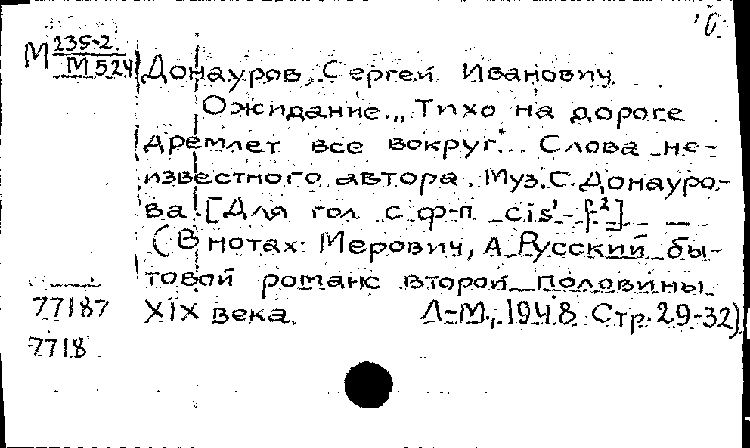 М 235-2
М 524
Донауров, Сергей Иванович
Ожидание. „Тихо на дороге
дремлет все вокруг." Слова не-
известного автора. Муз. С. Донауро-
ва [Для гол с ф-п cis¹ - f²]
(В нотах: Мерович, А. Русский бы-
товой романс второй половины
XIX века. Л-М., 1948 Стр. 29-32)
77187
7718